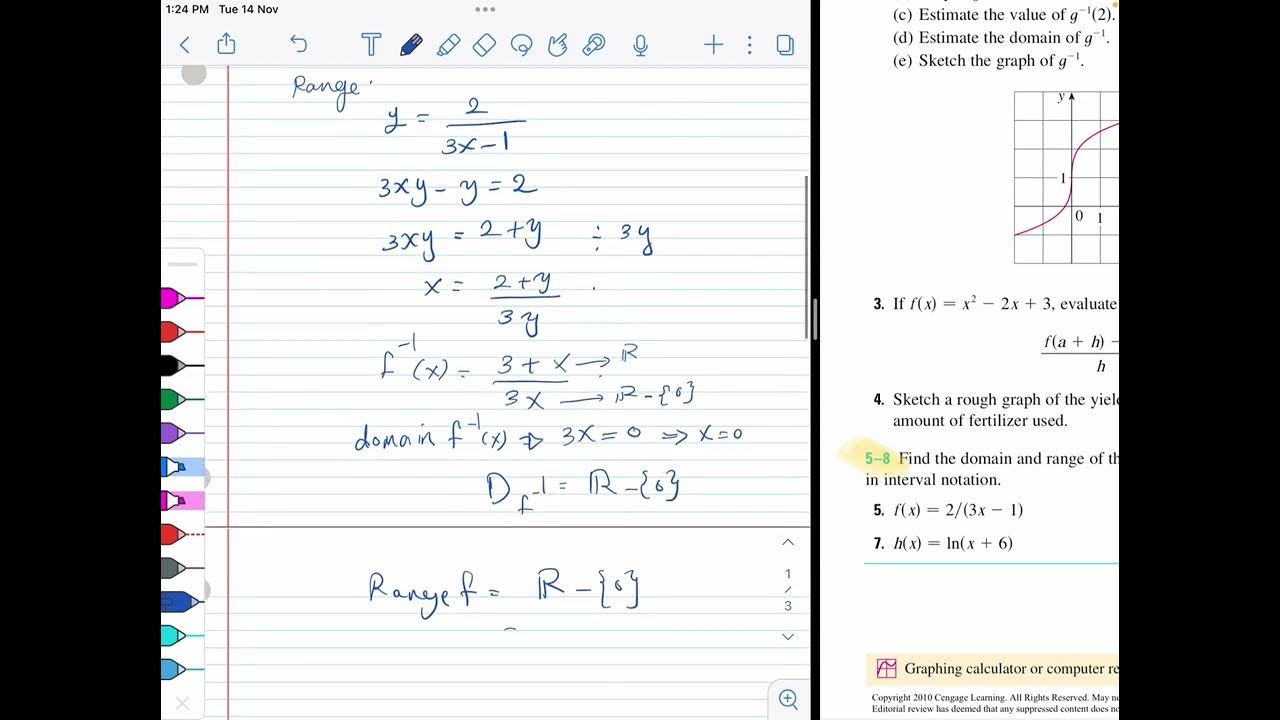 1:24 PM Tue 14 Nov
Range.
y = 2 / 3x-1
3xy - y = 2
3xy = 2+y ÷ 3y
x = 2+y / 3y
f⁻¹(x) = 3+x / 3x
→ ℝ
→ ℝ-{0}
domain f⁻¹(x) ⇒ 3x=0 ⇒ x=0
D f⁻¹ = ℝ-{0}
Range f = ℝ-{0}
1
/
3
(c) Estimate the value of g⁻¹(2).
(d) Estimate the domain of g⁻¹.
(e) Sketch the graph of g⁻¹.
y
1
0 1
3. If f(x) = x² − 2x + 3, evaluate
f(a + h) −
h
4. Sketch a rough graph of the yiel
amount of fertilizer used.
5–8 Find the domain and range of th
in interval notation.
5. f(x) = 2/(3x − 1)
7. h(x) = ln(x + 6)
Graphing calculator or computer re
Copyright 2010 Cengage Learning. All Rights Reserved. May no
Editorial review has deemed that any suppressed content does no